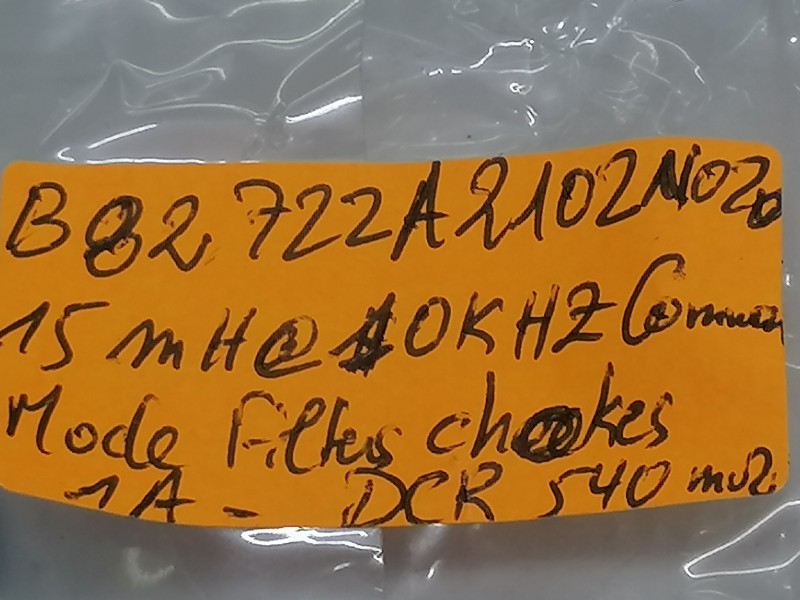 B82722A2102N020
15mH@10KHZ Common
Mode Filter chokes
1A - DCR 540 mΩ